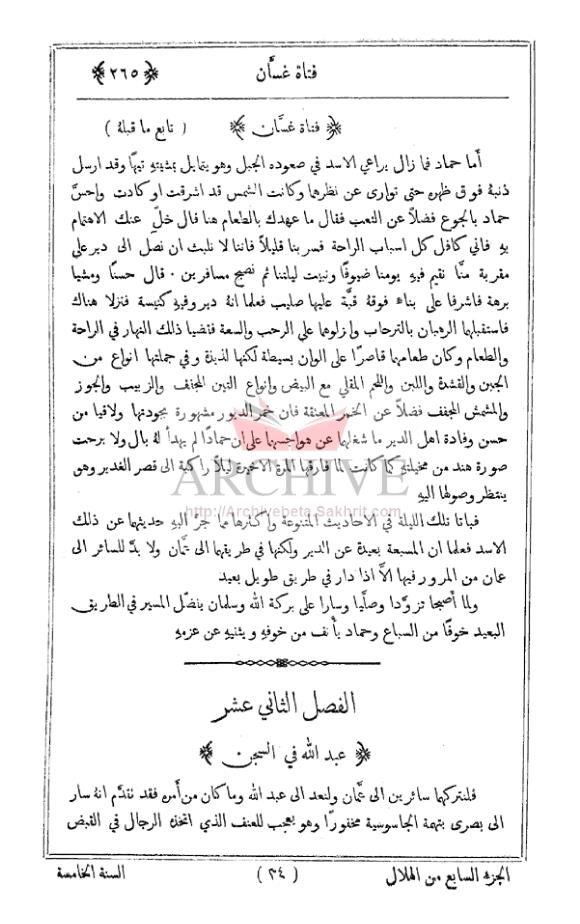 فتاة غسَّان ﴿ ٢٦٥ ﴾
﴿ فتاة غسَّان ﴾ ( تابع ما قبلهُ )
أما حماد فما زال يراعي الاسد في صعوده الجبل وهو يتمايل بمشيتهِ تيهًا وقد ارسل
ذنبهُ فوق ظهره حتى توارى عن نظرها وكانت الشمس قد اشرقت او كادت واحسَّ
حماد بالجوع فضلاً عن التعب فقال ما عهدك بالطعام هنا قال خلِّ عنك الاهتمام
بهِ فاني كافل كل اسباب الراحة فسر بنا قليلاً فاننا لا نلبث ان نصل الى دير على
مقربة منَّا نقيم فيهِ يومنا ضيوفًا ونبيت ليلتنا ثم نصبح مسافرين . قال حسنًا ومشيا
برهة فاشرفا على بناء فوقهُ قبَّة عليها صليب فعلما انهُ دير وفيهِ كنيسة فنزلا هناك
فاستقبلها الرهبان بالترحاب وانزلوها على الرحب والسعة فقضيا ذلك النهار في الراحة
والطعام وكان طعامهما قاصرًا على الوان بسيطة لكنها لذيذة وفي جملتها انواع من
الجبن والقشدة واللبن واللحم المقلي مع البيض وانواع التين المجفف والزبيب والجوز
والمشمش المجفف فضلاً عن الخمر المعتقة فان خمر الديور مشهورة بجودتها ولاقيا من
حسن وفادة اهل الدير ما شغلها عن هواجسها على ان حمادًا لم يهدأ لهُ بال ولا برحت
صورة هند من مخيلتهِ كما كانت لما فارقها المرة الاخيرة ليلاً راكبة الى قصر الغدير وهو
ينتظر وصولها اليهِ
ARCHIVE
http://Archivebeta.Sakhrit.com
فباتا تلك الليلة في الاحاديث المتنوعة واكثرها مما جرَّ اليهِ حديثهما عن ذلك
الاسد فعلما ان المسبعة بعيدة عن الدير ولكنها في طريقهما الى عمَّان ولا بدَّ للسائر الى
عمان من المرور فيها الاَّ اذا دار في طريق طويل بعيد
ولما أصبحا تزوَّدا وصلَّيا وسارا على بركة الله وسلمان يفضّل المسير في الطريق
البعيد خوفًا من السباع وحماد يأنف من خوفهِ ويثنيهِ عن عزمهِ
الفصل الثاني عشر
﴿ عبد الله في السجن ﴾
فلنتركهما سائرين الى عمَّان ولنعد الى عبد الله وما كان من أمره فقد تقدَّم انهُ سار
الى بصرى بتهمة الجاسوسية مخفورًا وهو يعجب للعنف الذي اتخذه الرجال في القبض
الجزء السابع من الهلال ( ٣٤ ) السنة الخامسة